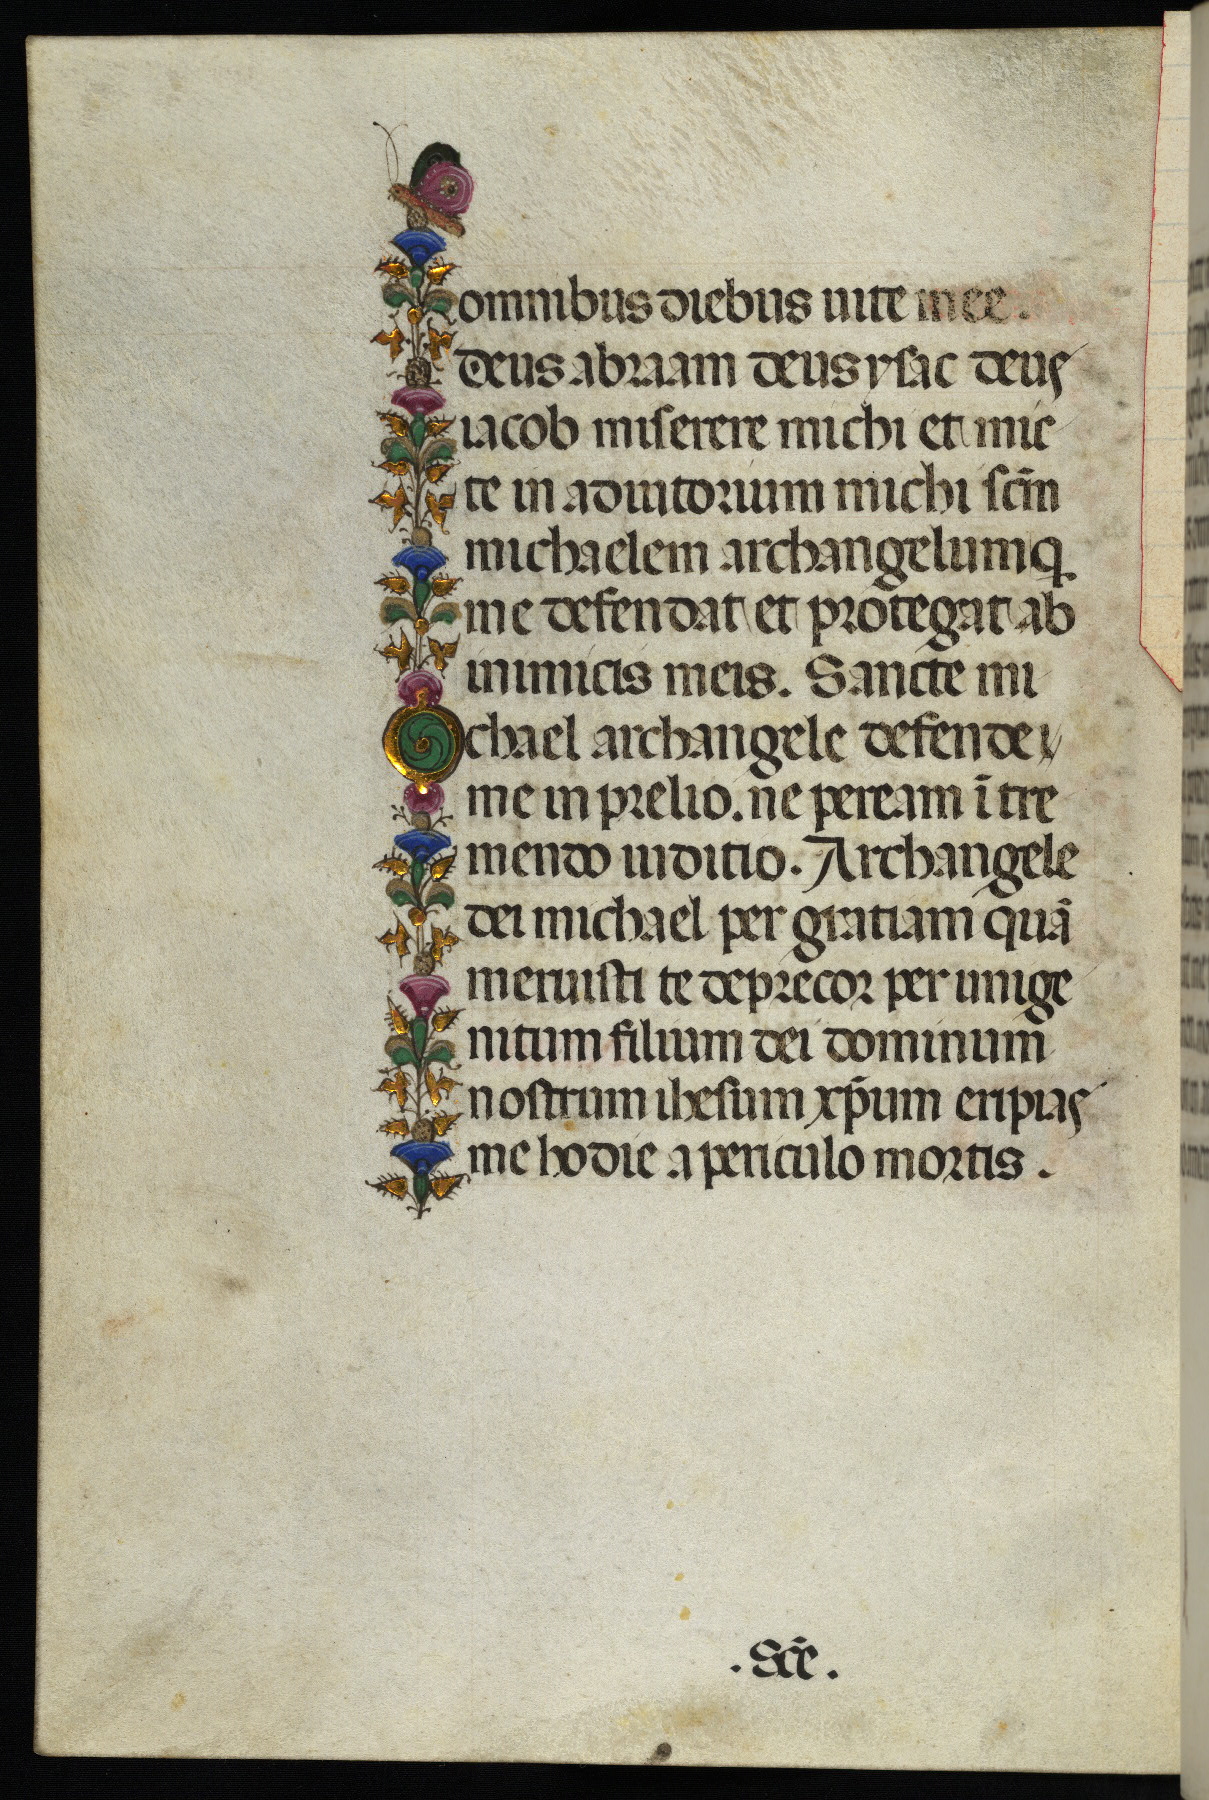 omnibus diebus uite mee.
Deus abraam deus ysac deus
iacob miserere michi et mic
te in adiutorium michi scm̄
michaelem archangelum q
me defendat et protegat ab
inimicis meis. Sancte mi
chael archangele defende
me in prelio. ne peream ī tre
mendo iuditio. Archangele
dei michael per gratiam quā
meruisti te deprecor per unige
nitum filium dei dominum
nostrum ihesum xp̄um eripias
me hodie a periculo mortis.
.Sc̄e.